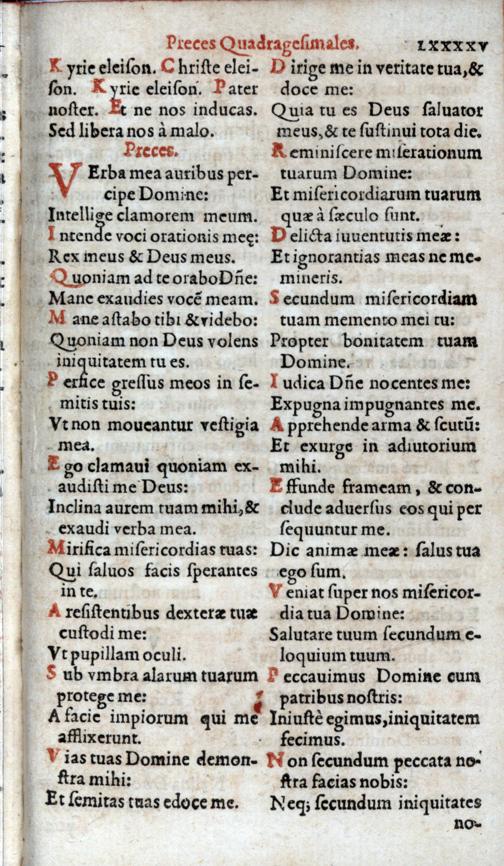 Preces Quadragesimales. LXXXXV
Kyrie eleiſon. Chriſte elei-
ſon. Kyrie eleiſon. Pater
noſter. Et ne nos inducas.
Sed libera nos à malo.
Preces.
VErba mea auribus per-
cipe Domine:
Intellige clamorem meum.
Intende voci orationis meę:
Rex meus & Deus meus.
Quoniam ad te orabo Dñe:
Mane exaudies vocẽ meam.
Mane aſtabo tibi & videbo:
Quoniam non Deus volens
iniquitatem tu es.
Perfice greſſus meos in ſe-
mitis tuis:
Vt non moueantur veſtigia
mea.
Ego clamaui quoniam ex-
audiſti me Deus:
Inclina aurem tuam mihi, &
exaudi verba mea.
Mirifica miſericordias tuas:
Qui ſaluos facis ſperantes
in te.
A reſiſtentibus dexteræ tuæ
cuſtodi me:
Vt pupillam oculi.
Sub vmbra alarum tuarum
protege me:
A facie impiorum qui me
afflixerunt.
Vias tuas Domine demon-
ſtra mihi:
Et ſemitas tuas edoce me.
Dirige me in veritate tua, &
doce me:
Quia tu es Deus ſaluator
meus, & te ſuſtinui tota die.
Reminiſcere miſerationum
tuarum Domine:
Et miſericordiarum tuarum
quæ à ſæculo ſunt.
Delicta iuuentutis meæ:
Et ignorantias meas ne me-
mineris.
Secundum miſericordiam
tuam memento mei tu:
Propter bonitatem tuam
Domine.
Iudica Dñe nocentes me:
Expugna impugnantes me.
Apprehende arma & ſcutũ:
Et exurge in adiutorium
mihi.
Effunde frameam, & con-
clude aduerſus eos qui per
ſequuntur me.
Dic animæ meæ: ſalus tua
ego ſum.
Veniat ſuper nos miſericor-
dia tua Domine:
Salutare tuum ſecundum e-
loquium tuum.
Peccauimus Domine cum
patribus noſtris:
Iniuſtè egimus, iniquitatem
fecimus.
Non ſecundum peccata no-
ſtra facias nobis:
Neq; ſecundum iniquitates
no-